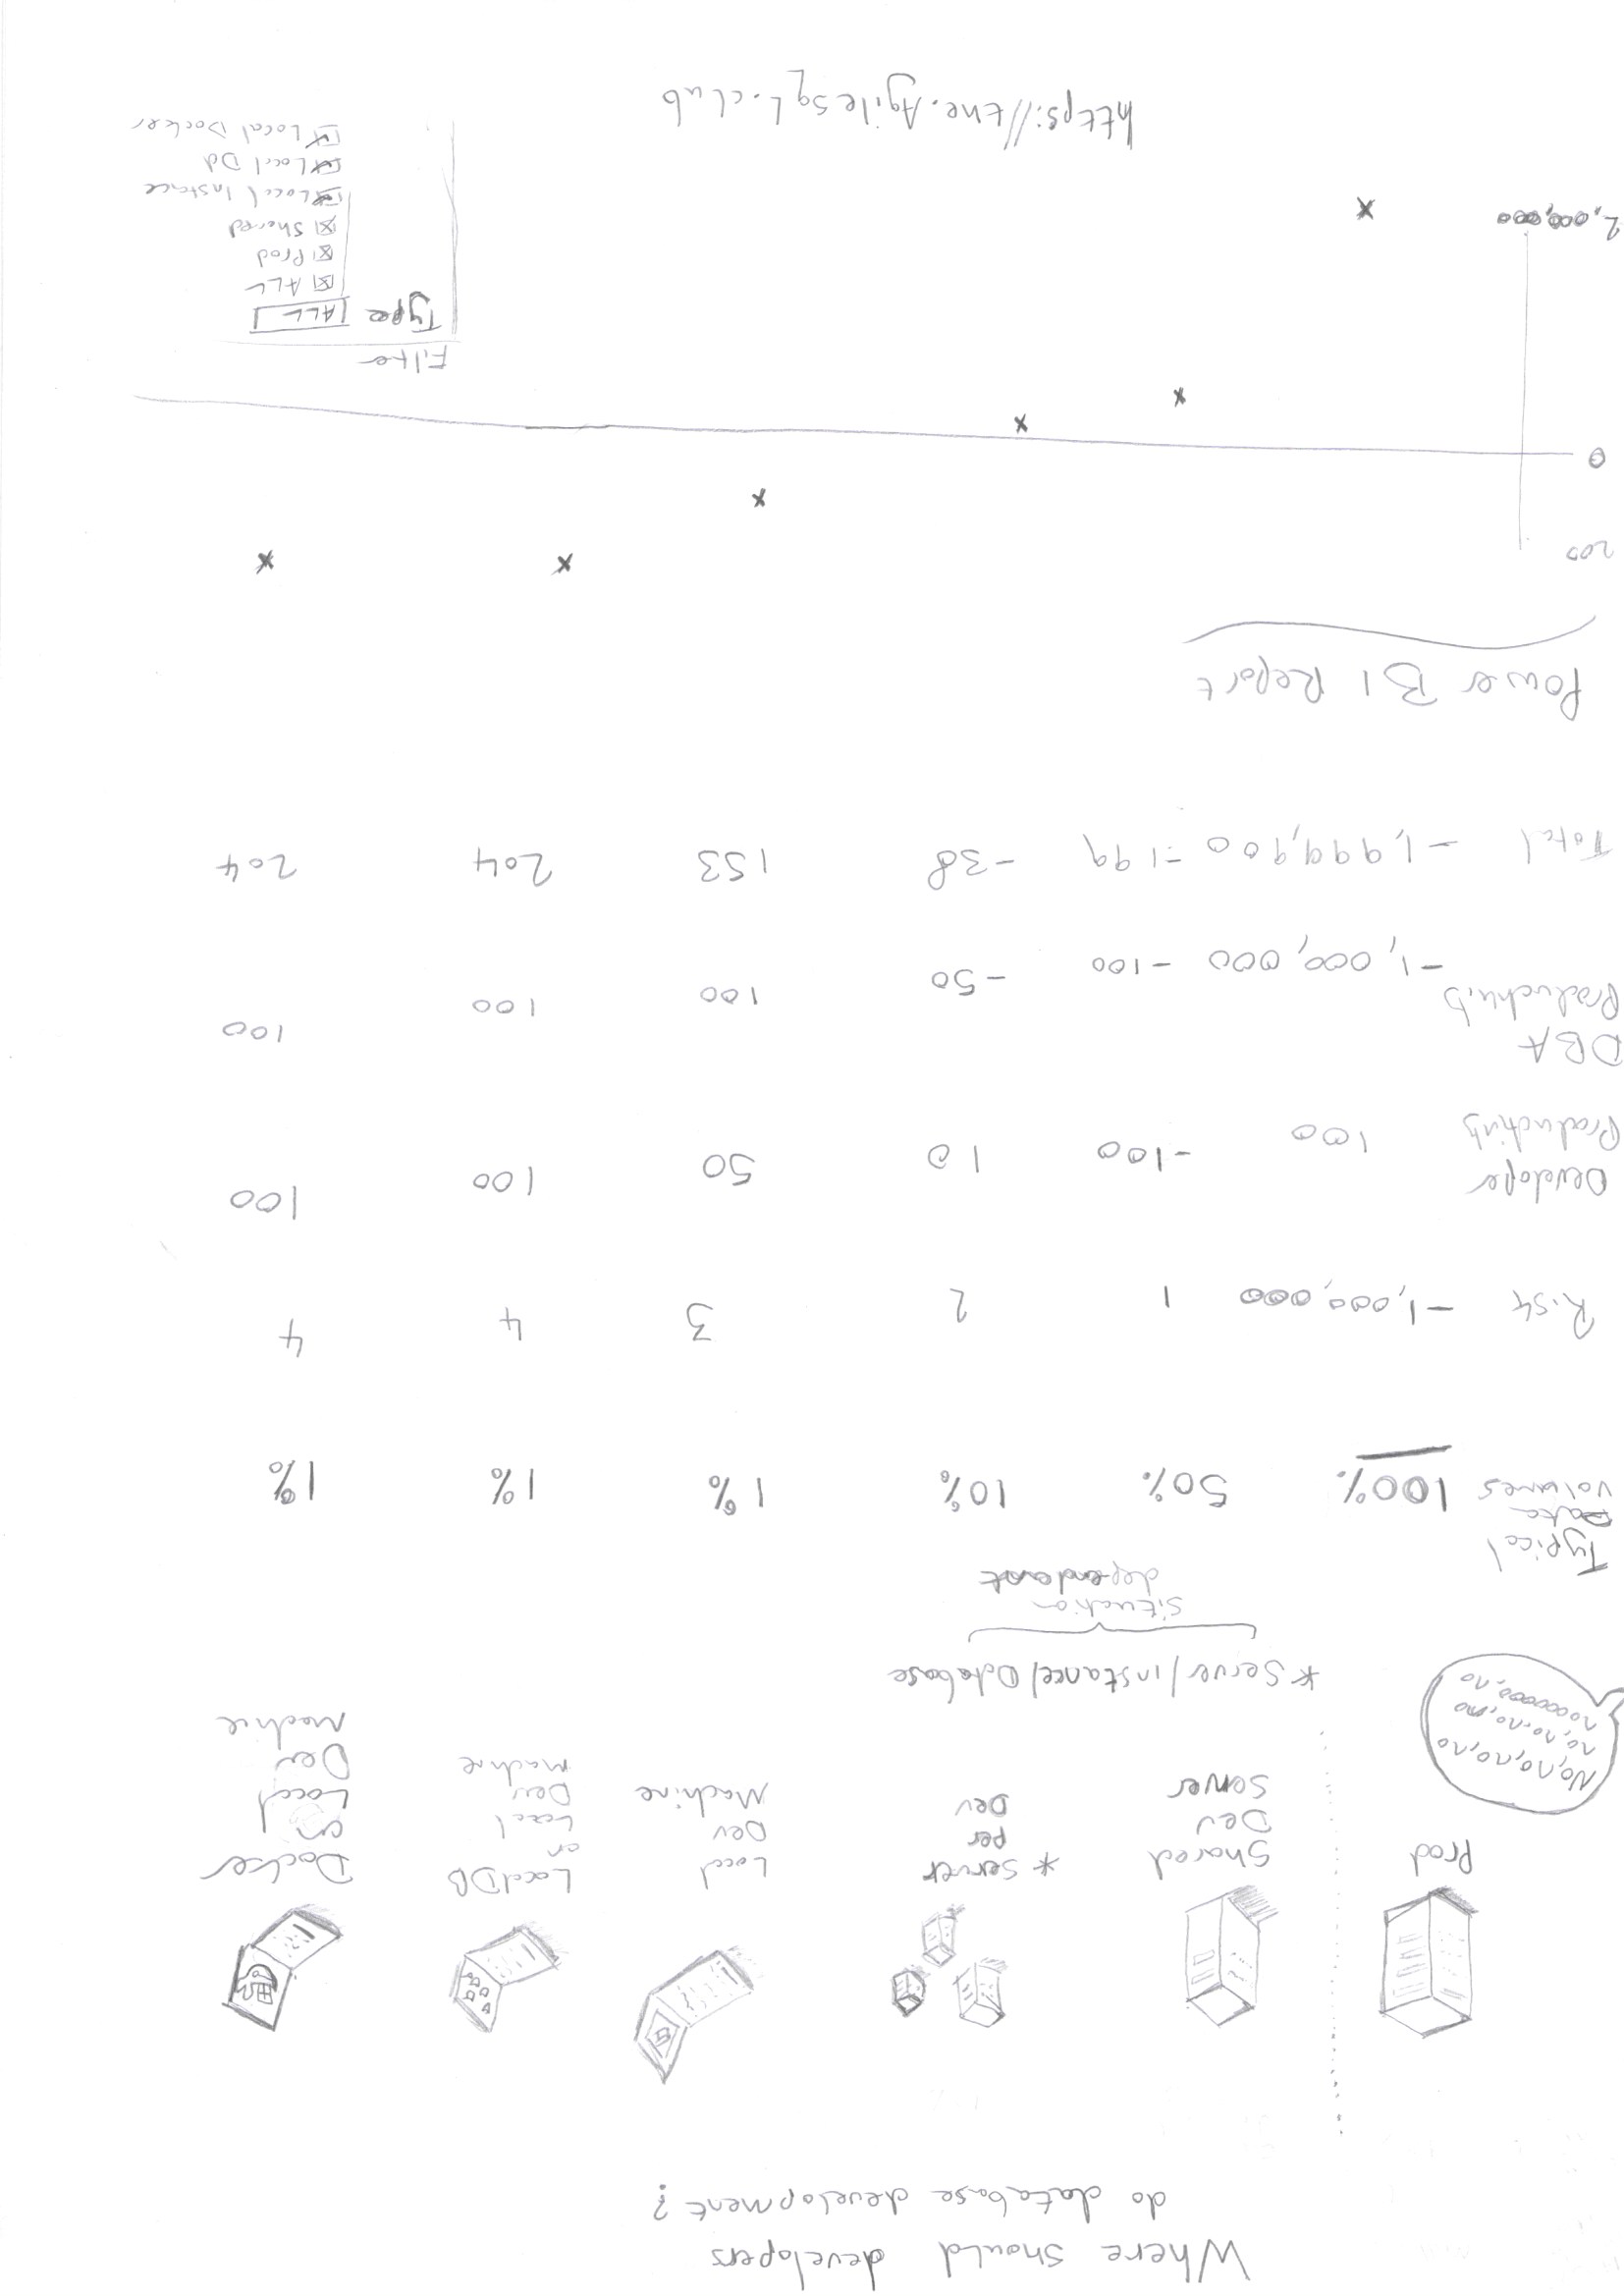 Where should developers
do database development?
Prod
Shared
Dev
Server
* Server
per
Dev
Local
Dev
Machine
LocalDB
on
Local
Dev
Machine
Docker
on
Local
Dev
Machine
No, no, no, no
no, no, no, no
nooooooo, no
* Server/instance/Database
situation
dependant
Typical
Data
Volumes
100% 50% 10% 1% 1% 1%
Risk -1,000,000 1 2 3 4 4
Developer
Productivity
100 -100 10 50 100 100
DBA
Productivity
-1,000,000 -100 -50 100 100 100
Total -1,999,900 -199 -38 153 204 204
Power BI Report
200
0
2,000,000
Filter
Type ALL
ALL
Prod
Shared
Local Instace
Local Dd
Local Docker
https://the.AgileSqL.club